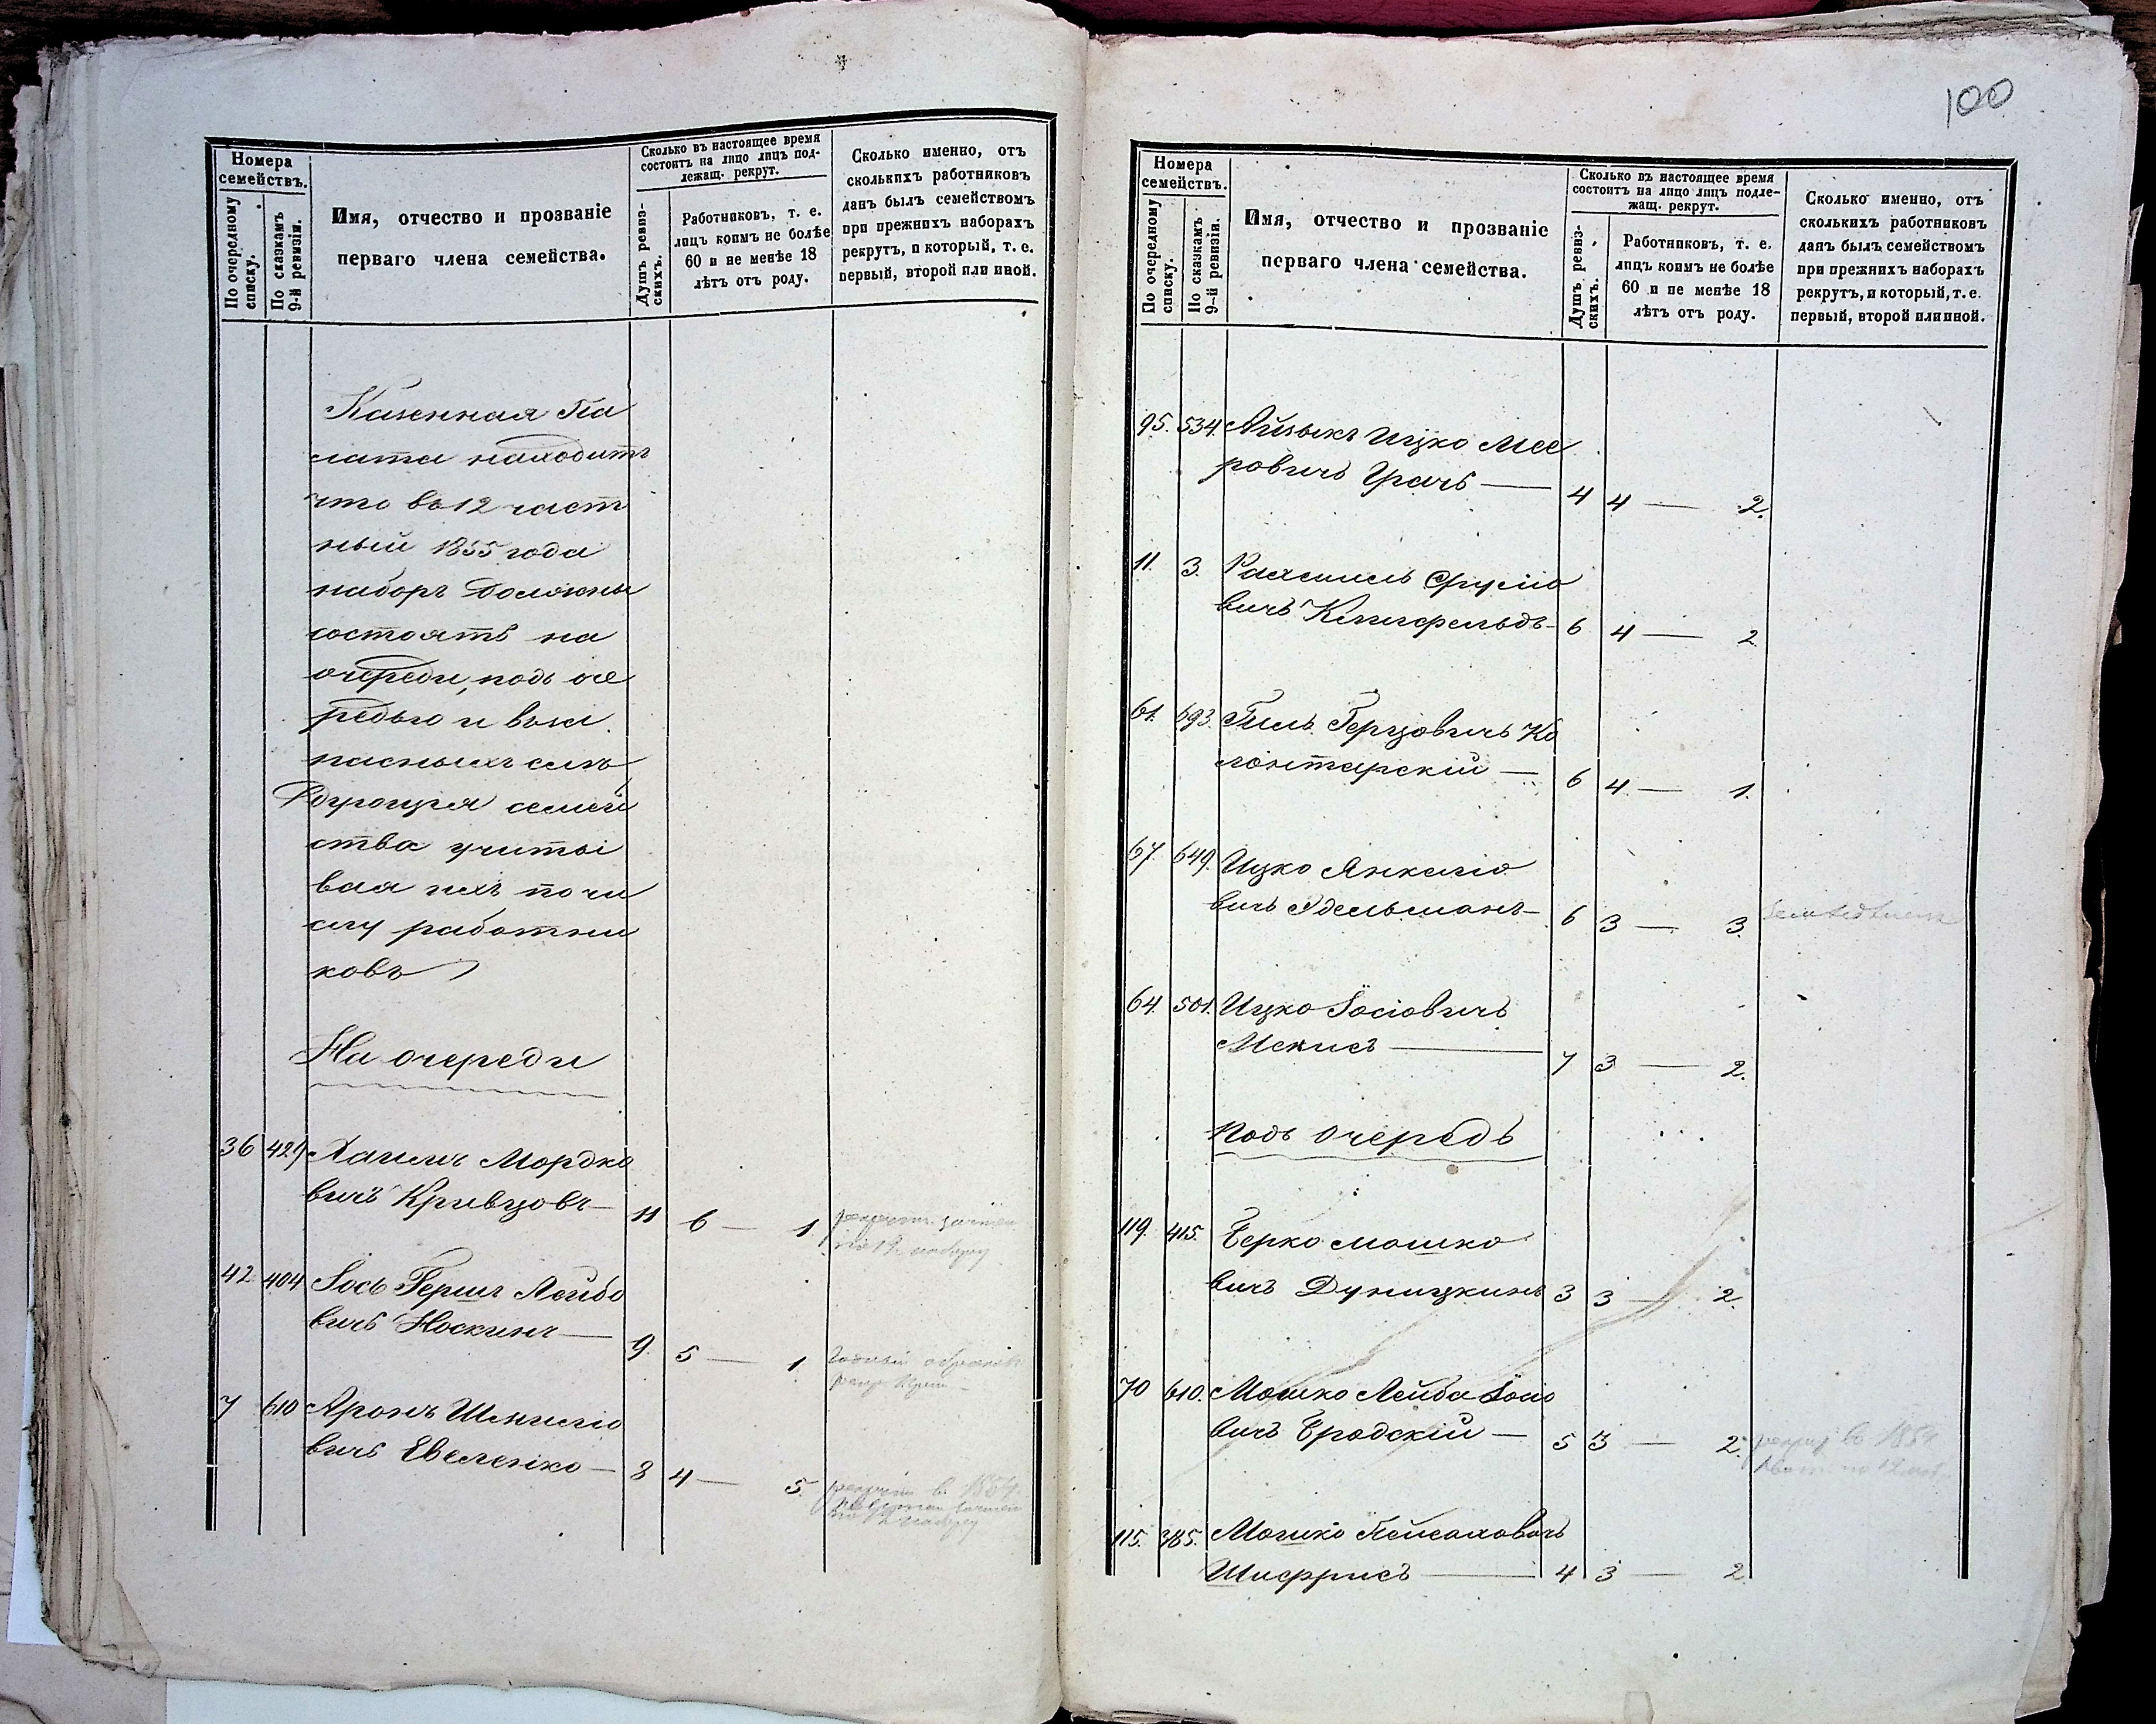 Номера
семействъ.
По очередному
списку.
По сказкамъ
9-й ревизіи.
Имя, отчество и прозваніе
перваго члена семейства.
Сколько въ настоящее время
состоитъ на лицо лицъ под-
лежащ. рекрут.
Душъ ревиз-
скихъ.
Работниковъ, т. е.
лицъ коимъ не болѣе
60 и не менѣе 18
лѣтъ отъ роду.
Сколько именно, отъ
сколькихъ работниковъ
данъ былъ семействомъ
при прежнихъ наборахъ
рекрутъ, и который, т. е.
первый, второй или иной.
Казенная Па
лата находитъ
что въ 12 част
ный 1855 года
наборъ должны
состоять на
очереди, подъ оче
редью и въ за
пасныхъ слѣ
дующія семей
ства учиты
вая ихъ по чи
слу работни
ковъ
На очереди
36 429 Хаимъ Мордко
вичъ Кривцовъ — 11 6 — 1
42 404 Іось Гершъ Лейбо
вичъ Носкинъ — 9. 5 — 1
7 610 Аронъ Шмуило
вичъ Евеленко — 8 4 — 5.
100
Номера
семействъ.
По очередному
списку.
По сказкамъ
9-й ревизіи.
Имя, отчество и прозваніе
перваго члена семейства.
Сколько въ настоящее время
состоитъ на лицо лицъ подле-
жащ. рекрут.
Душъ ревиз-
скихъ.
Работниковъ, т. е.
лицъ коимъ не болѣе
60 и не менѣе 18
лѣтъ отъ роду.
Сколько именно, отъ
сколькихъ работниковъ
данъ былъ семействомъ
при прежнихъ наборахъ
рекрутъ, и который, т. е.
первый, второй или иной.
95. 534. Айзыкъ Ицко Мее
ровичъ Грачъ — 4 4 — 2.
11. 3. Рахмиль Сруліо
вичъ Клигфельдъ — 6 4 — 2
61. 693. Гиль Герцовичъ Ко
лонтарскій — 6 4 — 1.
67. 649. Ицко Янкеліо
вичъ Эдельманъ — 6 3 — 3.
64. 501. Ицко Іосіовичъ
— 7 3 — 2.
Подъ очередь
119. 415. Берко Мошко
вичъ Дуницкинъ 3 3 — 2.
70 610. Мошко Лейба Іосіо
вичъ Бродскій — 5 3 — 2.
115. 385. Мошко Пейсаховичъ
Шифрисъ — 4 3 — 2